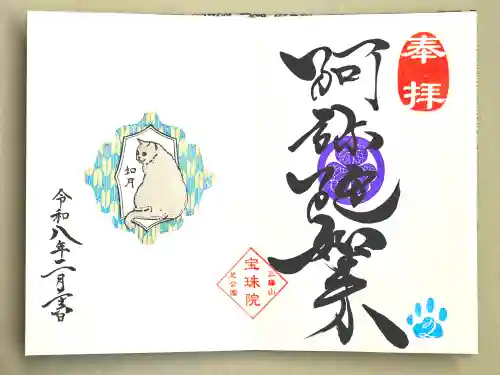 奉拝
阿弥陀如来
三縁山
宝珠院
芝公園
如月
令和八年二月吉日